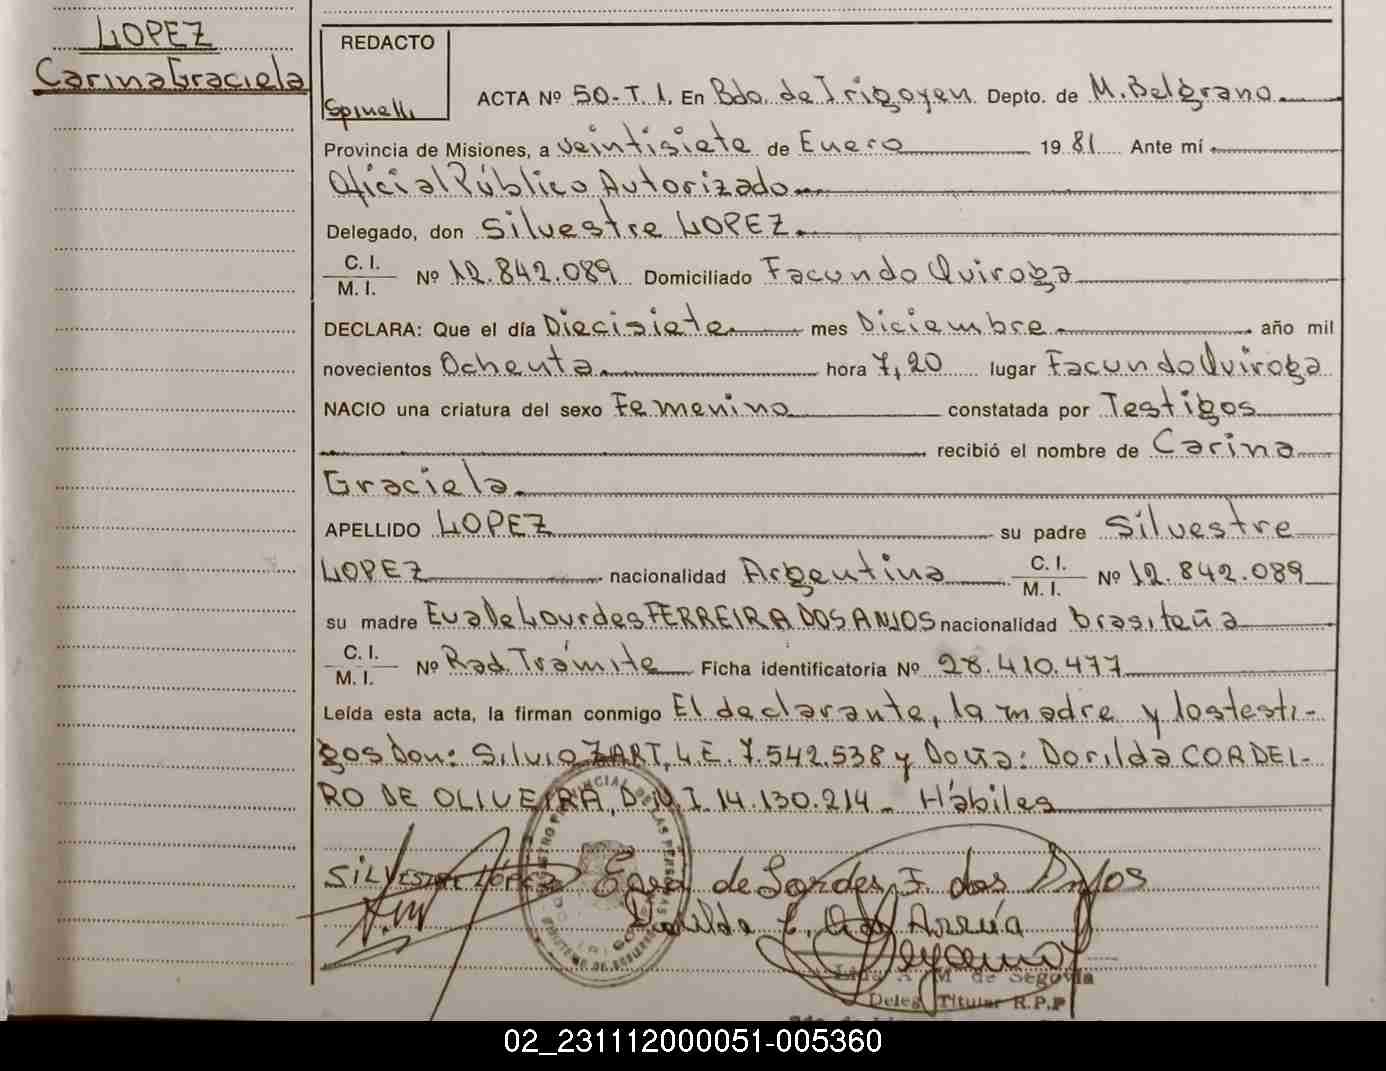 LOPEZ
Carina Graciela
REDACTO
Spinelli
ACTA Nº 50-T.1. En Bdo. de Irigoyen Depto. de M. Belgrano
Provincia de Misiones, a veintisiete de Enero 19 81 Ante mí
Oficial Público Autorizado
Delegado, don Silvestre LOPEZ.
C. I.
M. I.
Nº 12.842.089 Domiciliado Facundo Quiroga
DECLARA: Que el día Diecisiete mes Diciembre año mil
novecientos Ochenta hora 7,20 lugar Facundo Quiroga
NACIO una criatura del sexo Femenino constatada por Testigos
recibió el nombre de Carina
Graciela
APELLIDO LOPEZ su padre Silvestre
LOPEZ nacionalidad Argentina C. I. Nº 12.842.089
M. I.
su madre Eva De Lourdes FERREIRA DOS ANJOS nacionalidad brasileña
C. I.
M. I.
Nº Rad. Trámite Ficha identificatoria Nº 28.410.477
Leída esta acta, la firman conmigo El declarante, la madre y los testi-
gos Don: Silvio ZART, L.E. 7.542.538 y Doña: Dorilda CORDEI-
RO DE OLIVEIRA, D.N.I 14.130.214 - Hábiles
SILVESTRE LÓPEZ de Lordes F. dos Anjos
de Segovia
Deleg. Titular R.P.P
02_231112000051-005360